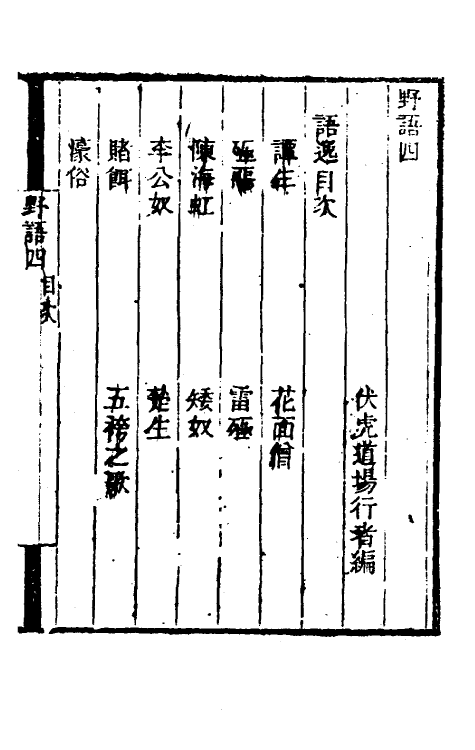 野語四
伏虎道場行者編
語逸目次
譚年 花面僧
雷殛
陳海虹 矮奴
李公奴 甦生
賭餌 五袴之歌
濠俗
野語四 目次